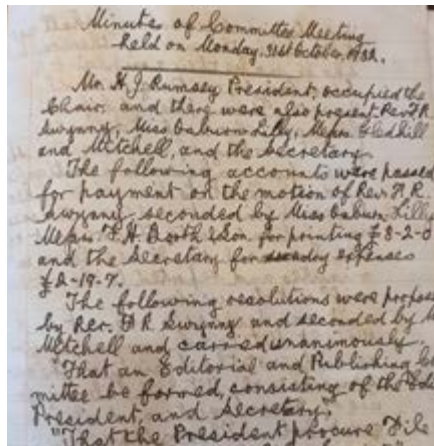 Minutes of Committee Meeting
held on Monday, 31st October, 1932.
Mr. H. J. Rumsey President, occupied the
Chair, and there were also present Rev. F. R.
Swynny, Miss Caburn Lilly, Messrs. Gledhill
and Mitchell, and the Secretary.
The following accounts were passed
for payment on the motion of Rev. F. R.
Swynny, seconded by Miss Caburn Lilly
Messrs. F. H. Booth & Son for printing £8-2-0
and the Secretary for expenses
£2-19-7.
The following resolutions were propos
by Rev. F. R. Swynny and seconded by M
Mitchell and carried unanimously
"That an Editorial and Publishing Com
mittee be formed, consisting of the Edi
President, and Secretary.
"That the President procure File